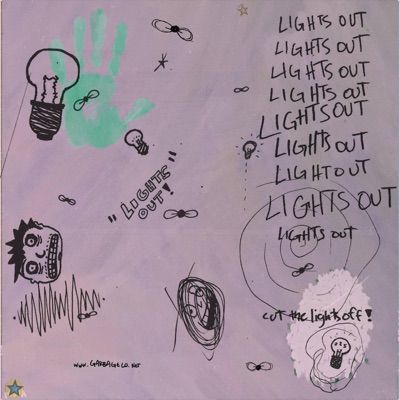 LIGHTS OUT
LIGHTS OUT
LIGHTS OUT
LIGHTS OUT
LIGHTS OUT
LIGHTS OUT
LIGHT OUT
LIGHTS OUT
LIGHTS OUT
"LIGHTS
OUT!"
cut the lights off!
www.GARBAGECO.NET